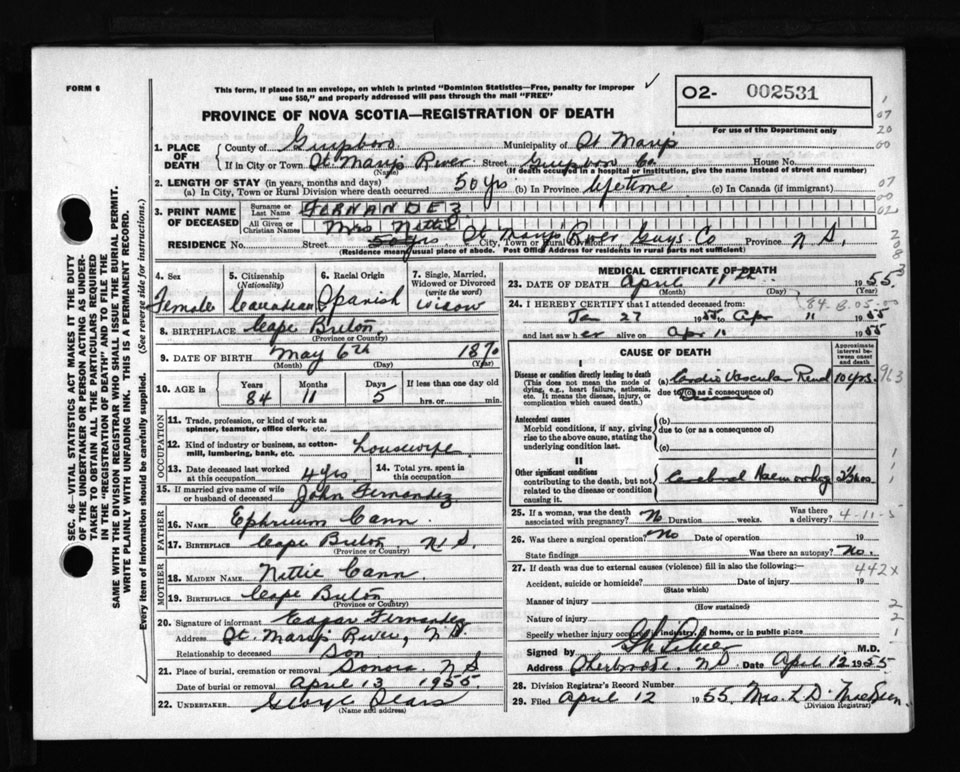 FORM 6
This form, if placed in an envelope, on which is printed "Dominion Statistics—Free, penalty for improper
use $50," and properly addressed will pass through the mail "FREE"
02- 002531
For use of the Department only
PROVINCE OF NOVA SCOTIA—REGISTRATION OF DEATH
1. PLACE OF DEATH
County of Guysboro Municipality of St Mary's
If in City or Town St. Mary's River Street Guysboro Co. House No.
(Name) (If death occurred in a hospital or institution, give name instead of street and number)
2. LENGTH OF STAY (in years, months and days)
(a) In City, Town or Rural Division where death occurred 50 yrs (b) In Province lifetime (c) In Canada (if immigrant)
3. PRINT NAME OF DECEASED
Surname or Last Name FERNANDEZ
All Given or Christian Names Mrs Nettie
RESIDENCE No. Street St Marys River Guys Co Province N S.
City, Town or Rural Division
(Residence means usual place of abode. Post Office Address for residents in rural parts not sufficient)
4. Sex Female
5. Citizenship (Nationality) Canadian
6. Racial Origin Spanish
7. Single, Married, Widowed or Divorced (write the word) Widow
8. BIRTHPLACE Cape Breton
(Province or Country)
9. DATE OF BIRTH May 6th 1870
(Month) (Day) (Year)
10. AGE in Years 84 Months 11 Days 5 If less than one day old hrs. or min.
OCCUPATION
11. Trade, profession, or kind of work as spinner, teamster, office clerk, etc.
12. Kind of industry or business, as cotton-mill, lumbering, bank, etc. housewife
13. Date deceased last worked at this occupation 4 yrs 14. Total yrs. spent in this occupation
15. If married give name of wife or husband of deceased John Fernandez
FATHER
16. NAME Ephrium Cann
17. BIRTHPLACE Cape Breton N.S.
(Province or Country)
MOTHER
18. MAIDEN NAME Nettie Cann
19. BIRTHPLACE Cape Breton
(Province or Country)
20. Signature of informant Edgar Fernandez
Address St. Marys River, N.S.
Relationship to deceased Son
21. Place of burial, cremation or removal Sonora N S
Date of burial or removal April 13 1955.
22. UNDERTAKER George
(Name and address)
MEDICAL CERTIFICATE OF DEATH
23. DATE OF DEATH April 11th 1955
(Month) (Day)
24. I HEREBY CERTIFY that I attended deceased from:
Jan 27 1955 to Apr 11 1955
and last saw her alive on Apr 10 1955
CAUSE OF DEATH
Approximate interval between onset and death
I
Disease or condition directly leading to death
(This does not mean the mode of dying, e.g., heart failure, asthenia, etc. It means the disease, injury, or complication which caused death.)
(a) Cardio Vascular Renal 10 yrs.
due to (or as a consequence of)
Antecedent causes
Morbid conditions, if any, giving rise to the above cause, stating the underlying condition last.
(b)
due to (or as a consequence of)
(c)
II
Other significant conditions
contributing to the death, but not related to the disease or condition causing it.
Cerebral Haemorrhage
25. If a woman, was the death associated with pregnancy? No Duration weeks. Was there a delivery?
26. Was there a surgical operation? No Date of operation 19
State findings Was there an autopsy? No.
27. If death was due to external causes (violence) fill in also the following:—
442X
Accident, suicide or homicide? Date of injury 19
(State which)
Manner of injury
(How sustained)
Nature of injury
Specify whether injury occurred in industry, home, or in public place
Signed by M.D.
Address Sherbrooke, N.S. Date April 12 1955
28. Division Registrar's Record Number
29. Filed April 12 1955
(Division Registrar)
SEC. 46—VITAL STATISTICS ACT MAKES IT THE DUTY
OF THE UNDERTAKER OR PERSON ACTING AS UNDER-
TAKER TO OBTAIN ALL THE PARTICULARS REQUIRED
IN THE "REGISTRATION OF DEATH" AND TO FILE THE
SAME WITH THE DIVISION REGISTRAR WHO SHALL ISSUE THE BURIAL PERMIT.
WRITE PLAINLY WITH UNFADING INK. THIS IS A PERMANENT RECORD.
Every item of information should be carefully supplied. (See reverse side for instructions.)